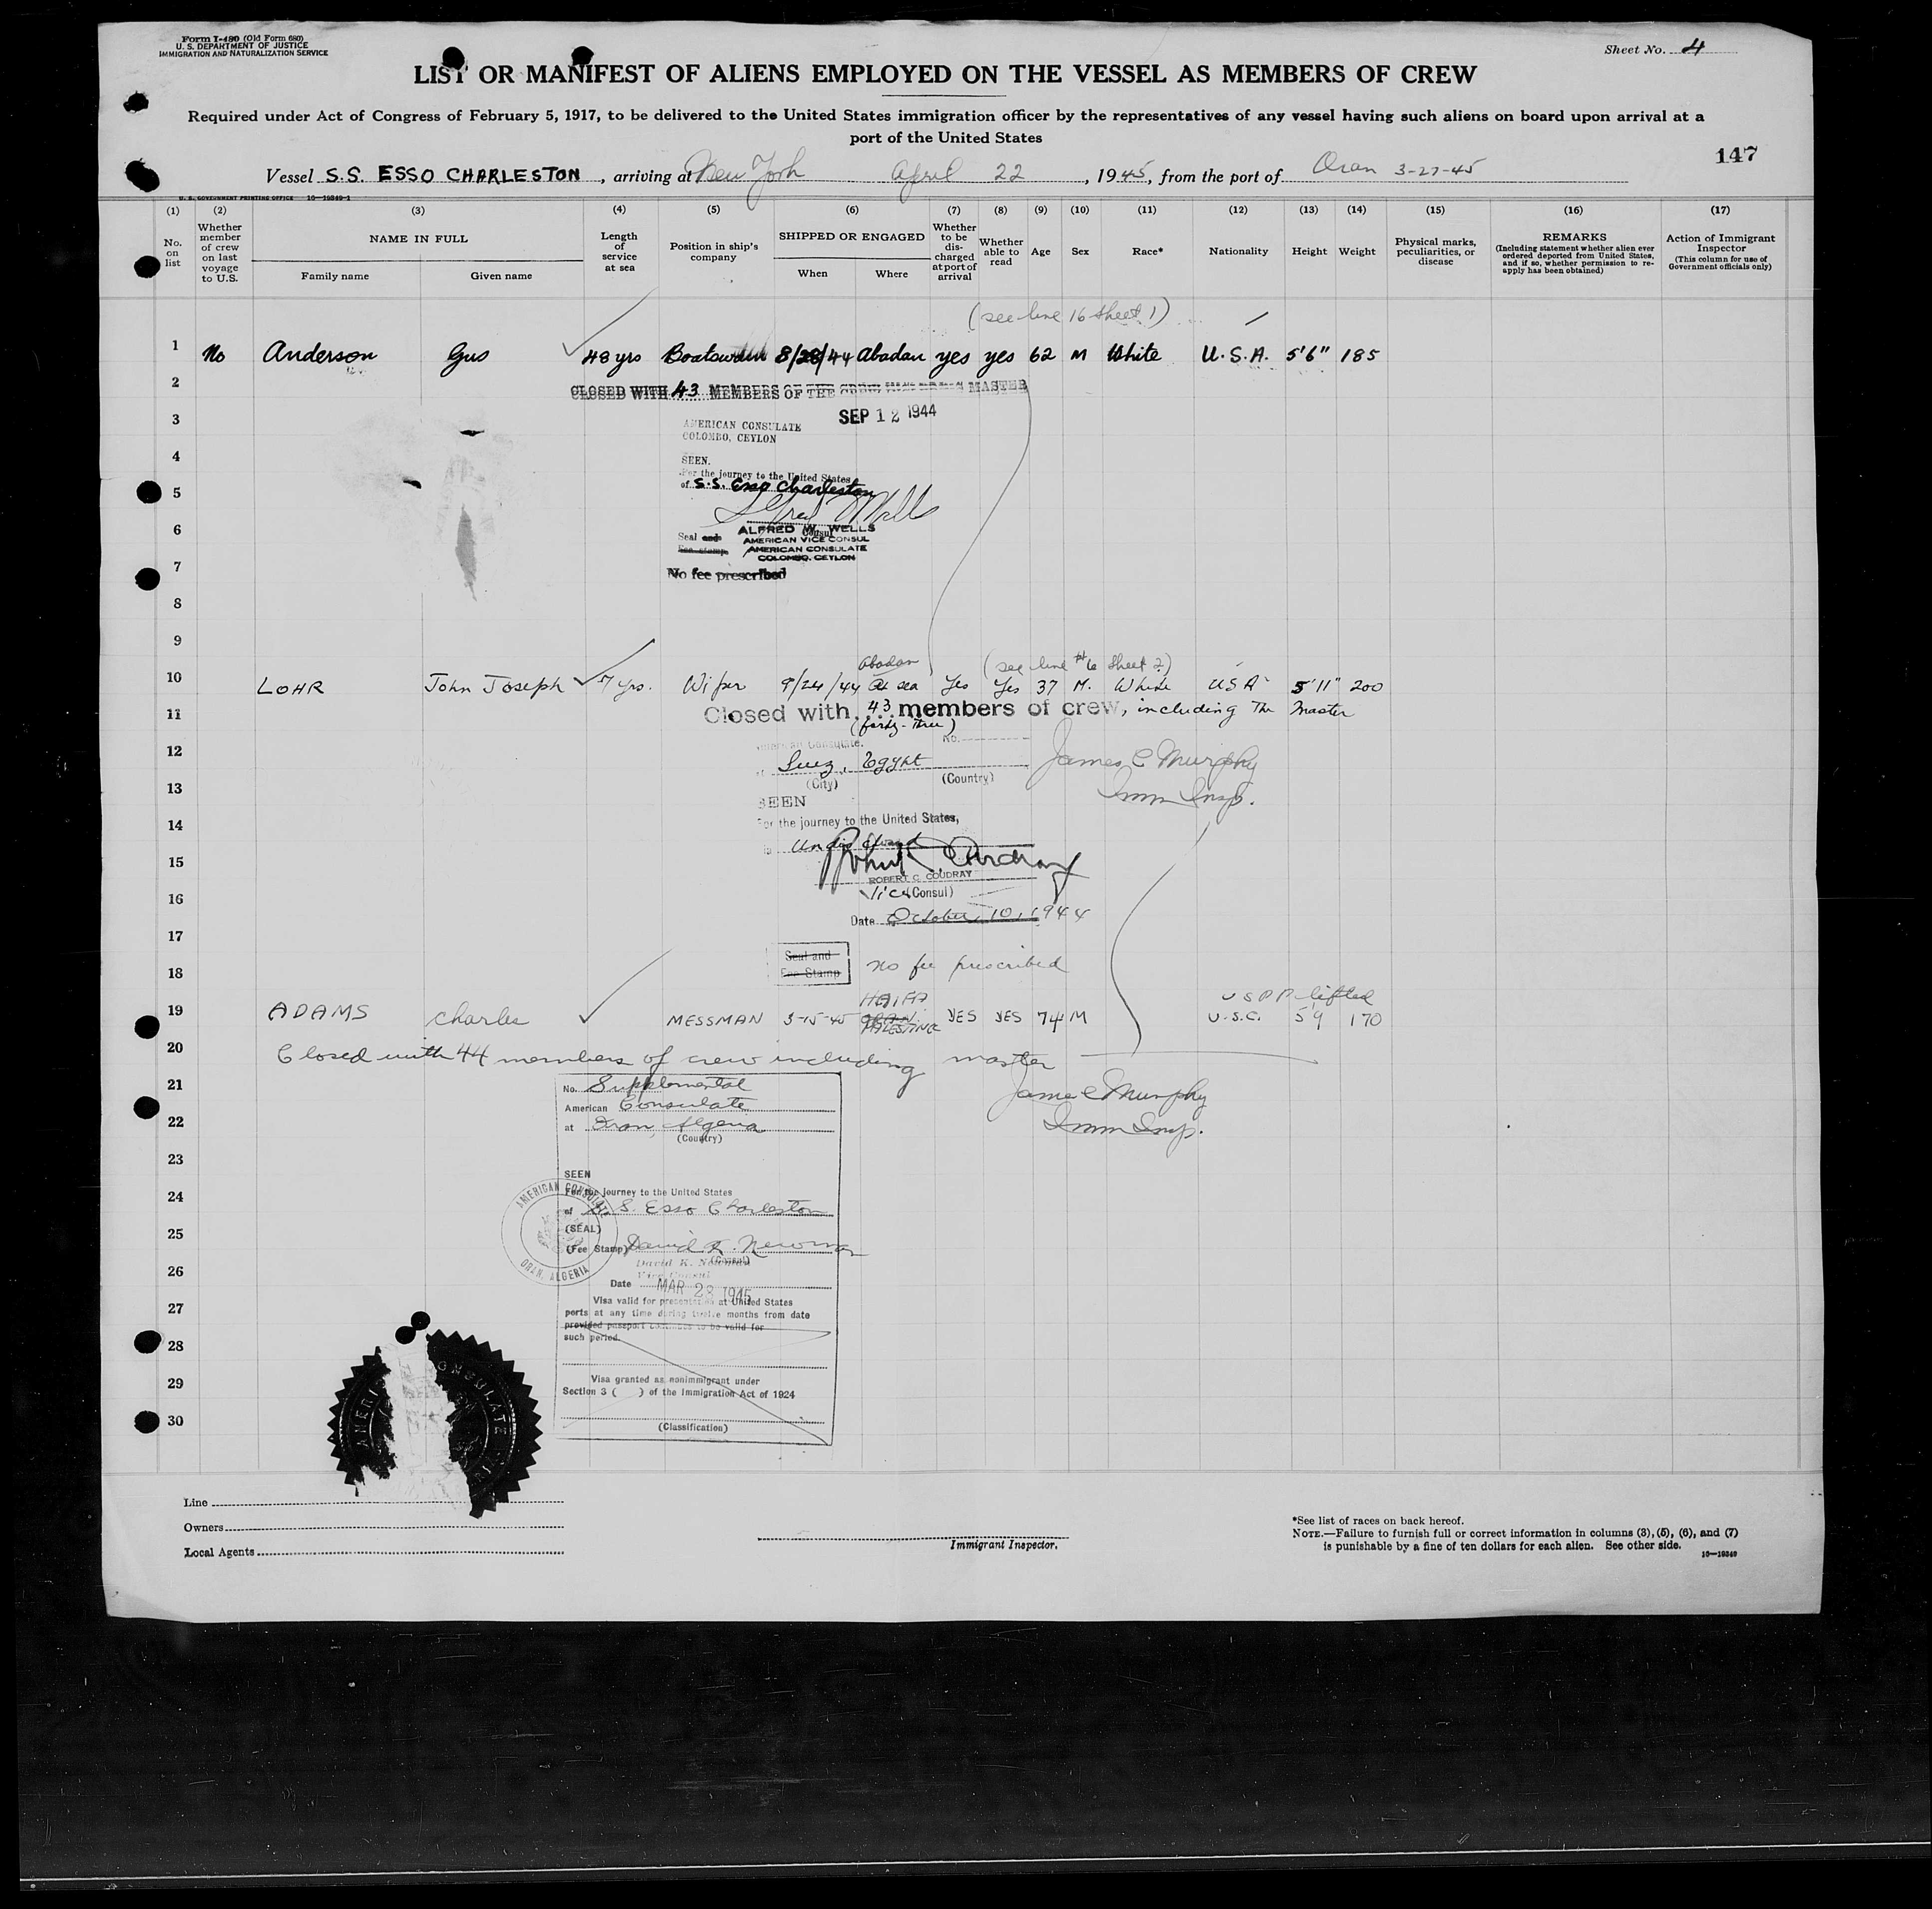 Form I-480 (Old Form 680)
U. S. DEPARTMENT OF JUSTICE
IMMIGRATION AND NATURALIZATION SERVICE
Sheet No. 4
LIST OR MANIFEST OF ALIENS EMPLOYED ON THE VESSEL AS MEMBERS OF CREW
Required under Act of Congress of February 5, 1917, to be delivered to the United States immigration officer by the representatives of any vessel having such aliens on board upon arrival at a
port of the United States
147
Vessel S.S. ESSO CHARLESTON, arriving at New York April 22, 1945, from the port of Oran 3-27-45
U. S. GOVERNMENT PRINTING OFFICE 16—19349-1
(1) (2) (3) (4) (5) (6) (7) (8) (9) (10) (11) (12) (13) (14) (15) (16) (17)
No. on list
Whether member of crew on last voyage to U.S.
NAME IN FULL
Family name
Given name
Length of service at sea
Position in ship's company
SHIPPED OR ENGAGED
When
Where
Whether to be discharged at port of arrival
Whether able to read
Age
Sex
Race*
Nationality
Height
Weight
Physical marks, peculiarities, or disease
REMARKS
(Including statement whether alien ever ordered deported from United States, and if so, whether permission to reapply has been obtained)
Action of Immigrant Inspector
(This column for use of Government officials only)
(see line 16 sheet 1)
1 No Anderson Gus 48 yrs Boatswain 8/28/44 Abadan yes yes 62 M White U.S.A. 5'6" 185
2 CLOSED WITH 43 MEMBERS OF THE CREW MASTER
3 SEP 12 1944
AMERICAN CONSULATE
COLOMBO, CEYLON
4
SEEN.
For the journey to the United States
5
of S.S. Esso Charleston
6
ALFRED W. WELLS
Consul
AMERICAN VICE CONSUL
Seal and
Fee stamp.
AMERICAN CONSULATE
COLOMBO, CEYLON
7
No fee prescribed
8
9
Abadan (see line #6 sheet 2)
10 LOHR John Joseph 7 yrs. Wiper 9/24/44 At sea Yes Yes 37 M. White USA 5'11" 200
11 Closed with 43 members of crew, including The Master
(forty-three)
American Consulate. No.
12
Suez, Egypt
(City) (Country)
James C Murphy
13
Imm Insp.
SEEN
14
For the journey to the United States,
15
ROBERT C. COUDRAY
16
Vice (Consul)
Date October 10, 1944
17
Seal and
Fee Stamp
18
no fee prescribed
HAIFA
USPP lifted
19 ADAMS Charles MESSMAN 3-15-45 ORAN PALESTINE YES YES 74 M U.S.C. 5'9 170
20 Closed with 44 members of crew including master
21
No. Supplemental
American Consulate
James C Murphy
22
at Oran, Algeria
(Country)
Imm Insp.
23
SEEN
24
For the journey to the United States
of S. S. Esso Charleston
AMERICAN CONSULATE
ORAN, ALGERIA
25
(SEAL)
(Fee Stamp) David K. Newman
(Consul)
David K. Newman
Vice Consul
26
Date MAR 28 1945
27
Visa valid for presentation at United States
ports at any time during twelve months from date
provided passport continues to be valid for
such period.
28
29
Visa granted as nonimmigrant under
Section 3 ( ) of the Immigration Act of 1924
30
(Classification)
Line
Owners
Local Agents
Immigrant Inspector.
*See list of races on back hereof.
NOTE.—Failure to furnish full or correct information in columns (3), (5), (6), and (7)
is punishable by a fine of ten dollars for each alien. See other side.
16—19349